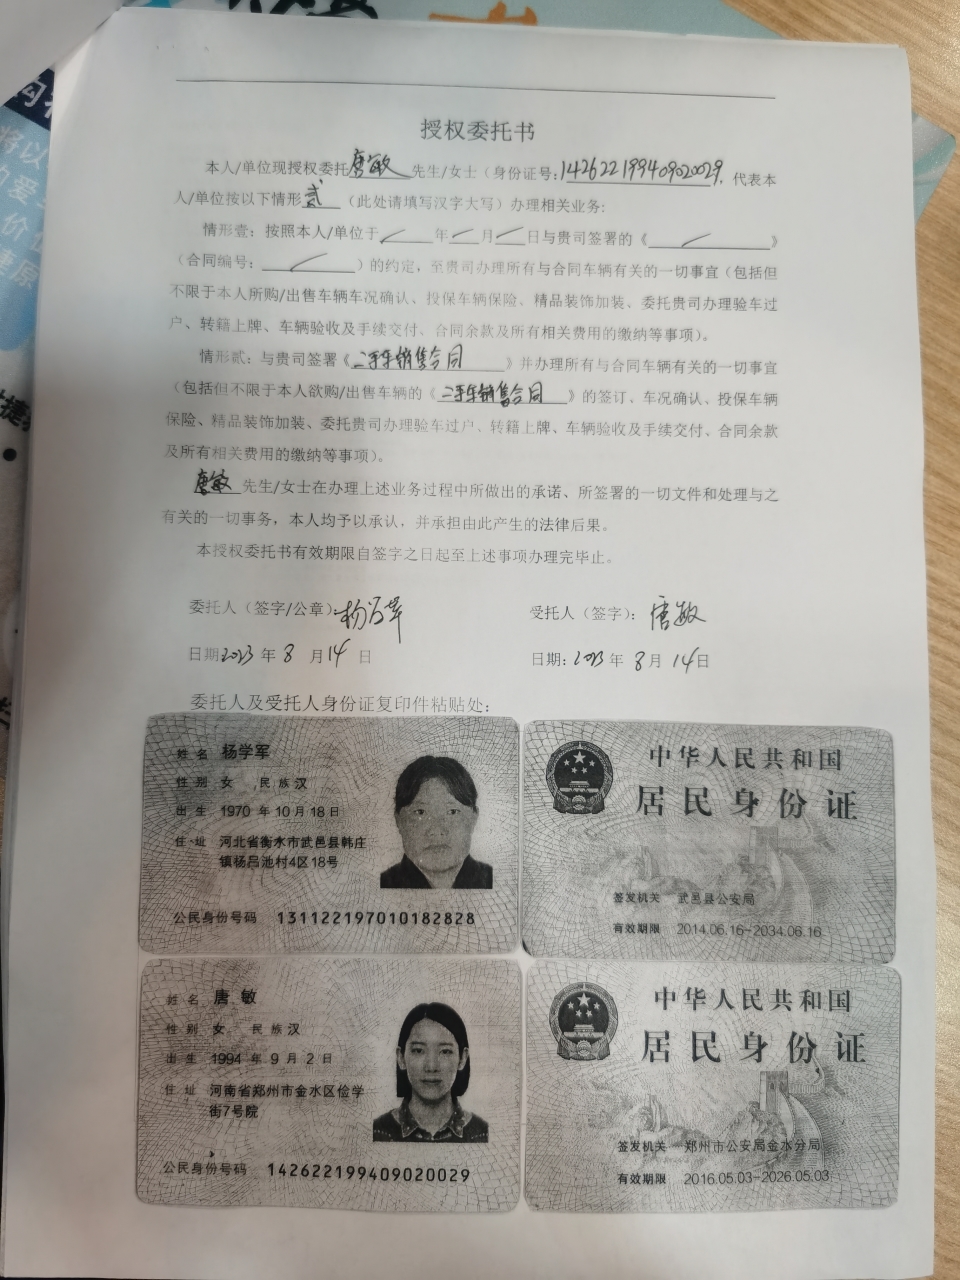 授权委托书
本人/单位现授权委托唐敏先生/女士（身份证号:142622199409020029，代表本
人/单位按以下情形贰（此处请填写汉字大写）办理相关业务:
情形壹：按照本人/单位于 年 月 日与贵司签署的《 》
（合同编号: ）的约定，至贵司办理所有与合同车辆有关的一切事宜（包括但
不限于本人所购/出售车辆车况确认、投保车辆保险、精品装饰加装、委托贵司办理验车过
户、转籍上牌、车辆验收及手续交付、合同余款及所有相关费用的缴纳等事项）。
情形贰：与贵司签署《二手车销售合同》并办理所有与合同车辆有关的一切事宜
（包括但不限于本人欲购/出售车辆的《二手车销售合同》的签订、车况确认、投保车辆
保险、精品装饰加装、委托贵司办理验车过户、转籍上牌、车辆验收及手续交付、合同余款
及所有相关费用的缴纳等事项）。
唐敏先生/女士在办理上述业务过程中所做出的承诺、所签署的一切文件和处理与之
有关的一切事务，本人均予以承认，并承担由此产生的法律后果。
本授权委托书有效期限自签字之日起至上述事项办理完毕止。
委托人（签字/公章）：杨学军 受托人（签字）：唐敏
日期2023年8月14日 日期：2023年8月14日
委托人及受托人身份证复印件粘贴处：
姓名 杨学军
性别 女 民族 汉
出生 1970年10月18日
住址 河北省衡水市武邑县韩庄
镇杨吕池村4区18号
公民身份号码 131122197010182828
中华人民共和国
居民身份证
签发机关 武邑县公安局
有效期限 2014.06.16-2034.06.16
姓名 唐敏
性别 女 民族 汉
出生 1994年9月2日
住址 河南省郑州市金水区俭学
街7号院
公民身份号码 142622199409020029
中华人民共和国
居民身份证
签发机关 郑州市公安局金水分局
有效期限 2016.05.03-2026.05.03